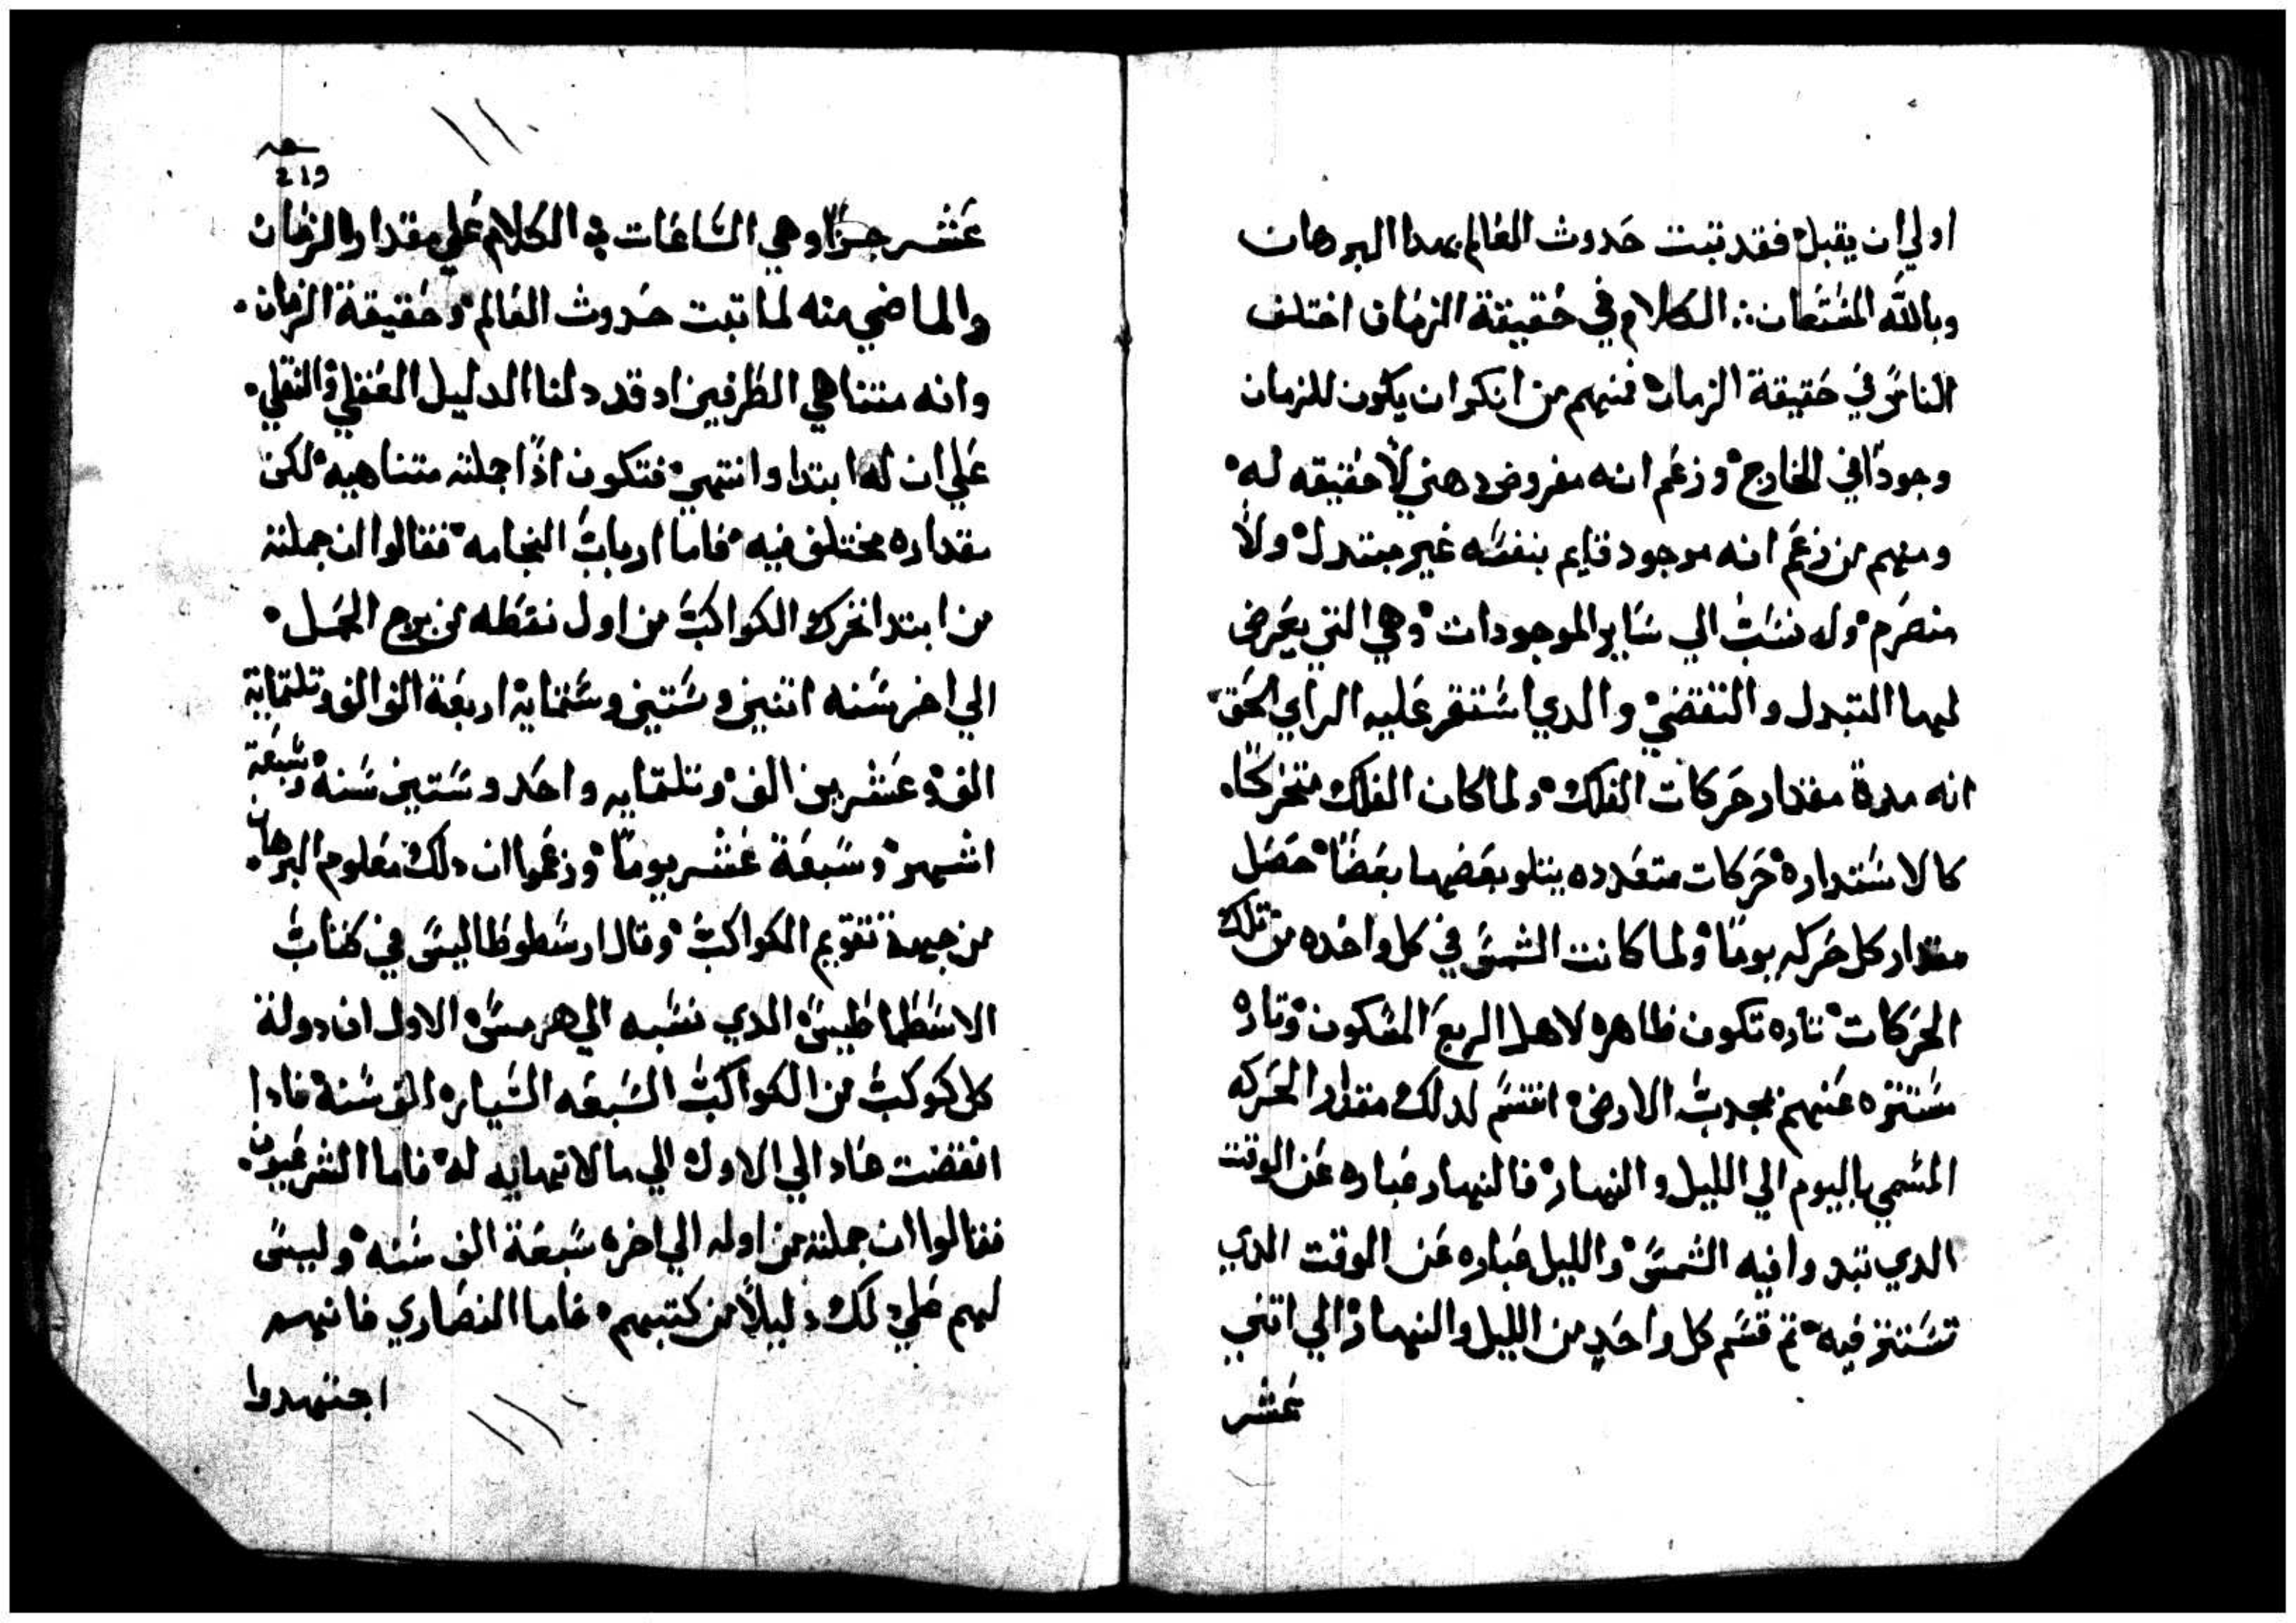 اولي ان يقبل فقد تبت حدوث العالم بهدا البرهان
وبالله المستعان ∴ الكلام في حقيقة الزمان اختلف
الناس في حقيقة الزمان فمنهم من انكر ان يكون للزمان
وجودًا في الخارج وزعم انه مفروض دهني لا حقيقه له
ومنهم من زعم انه موجود قايم بنفسه غير مبتدل ولا
منصرم وله نسب الي ساير الموجودات وهي التي يعرض
ليها التبدل والتقضي والدي استقر عليه الراي الحق
انه مدة مقدار حركات الفلك ولما كان الفلك متحركًا
كالاستداره حركات متعدده يتلو بعضها بعضًا حصل
مقدار كل حركه يومًا ولما كانت الشمس في كل واحده من تلك
الحركات تاره تكون ظاهره لاهل الربع المسكون وتاره
مستتره عنهم بحدبة الارض انقسم لدلك مقدار الحركه
المسمي باليوم الي الليل والنهار فالنهار عباره عن الوقت
الدي تبدوا فيه الشمس والليل عباره عن الوقت الدي
تستتر فيه تم قسم كل واحدٍ من الليل والنهار الي اتني
عشر
219
عشر جزًا وهي الساعات في الكلام علي مقدار الزمان
والماضي منه لما تبت حدوث العالم وحقيقة الزمان
وانه متناهي الطرفين اد قد دلنا الدليل العقلي والنقلي
علي ان له ابتدا وانتهي فتكون اذًا جملته متناهيه لكن
مقداره مختلف فيه فاما ارباب النجامه فقالوا ان جملته
من ابتدا تحرك الكواكب من اول نقطه من برج الحمل
الي اخر سنه اتنين وستين وستمايه اربعة الف الف وتلتمايه
الف وعشرين الف وتلتمايه واحد وستين سنه وسبعة
اشهر وسبعة عشر يومًا وزعموا ان دلك معلوم البرهان
من جهة تقويم الكواكب وقال ارسطوطاليس في كتاب
الاسطماطيس الدي نسبه الي هرمس الاول ان دولة
كل كوكب من الكواكب السبعه السياره الف سنة فادا
انقضت عاد الي الاول الي ما لا نهايه له فاما الشرعيون
فقالوا ان جملته من اوله الي اخره سبعة الف سنه وليس
لهم علي دلك دليلاً من كتبهم فاما النصاري فانهم
اجتهدوا